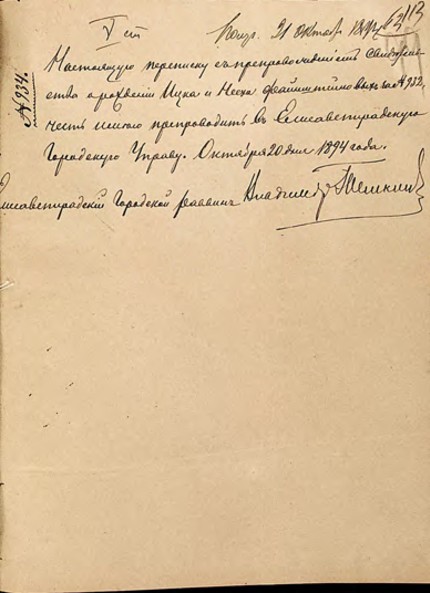 V ст Получ. 21 Октяб. 1894 13
№ 934.
Настоящую переписку съ препровожденіемъ Свидѣтель-
ства о рожденіи Ицка и Неха Файнштейновыхъ за № 932,
честь имѣю препроводить въ Елисаветградскую
Городскую Управу. Октября 20 дня 1894 года.
Елисаветградскій Городской Раввинъ Владимір Темкинъ